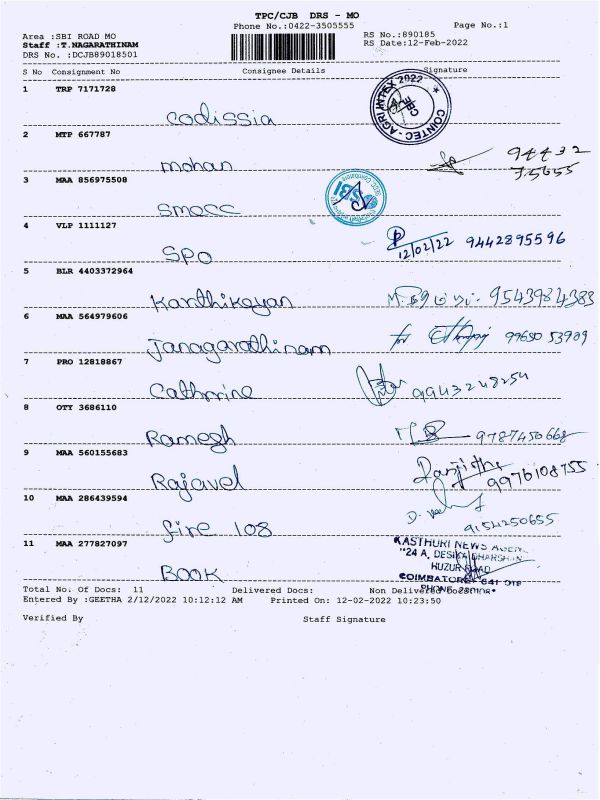 TPC/CJB DRS - MO
Phone No.:0422-3505555
Page No.:1
Area :SBI ROAD MO
RS No.:890185
Staff :T.NAGARATHINAM
RS Date:12-Feb-2022
DRS No. :DCJB89018501
S No Consignment No Consignee Details Signature
1 TRP 7171728
codissia
AGRI INTEX 2022
COINTEC
2 MTP 667787
mohan
94432
75655
3 MAA 856975508
smocc
SBI
4 VLP 1111127
SPO
12/02/22 9442895596
5 BLR 4403372964
Karthikeyan
9543984383
6 MAA 564979606
Janagarathinam
for
99650 53909
7 PRO 12818867
Cathrine
9943248254
8 OTY 3686110
Ramesh
9787450668
9 MAA 560155683
Rajavel
Ranjitha
9976108755
10 MAA 286439594
fire 108
9154250655
11 MAA 277827097
BOOK
KASTHURI NEWS
"24 A, DESIKA
HUZUR ROAD
COIMBATORE
PHONE
Total No. Of Docs: 11 Delivered Docs: Non Delivered Docs:
Entered By :GEETHA 2/12/2022 10:12:12 AM Printed On: 12-02-2022 10:23:50
Verified By Staff Signature